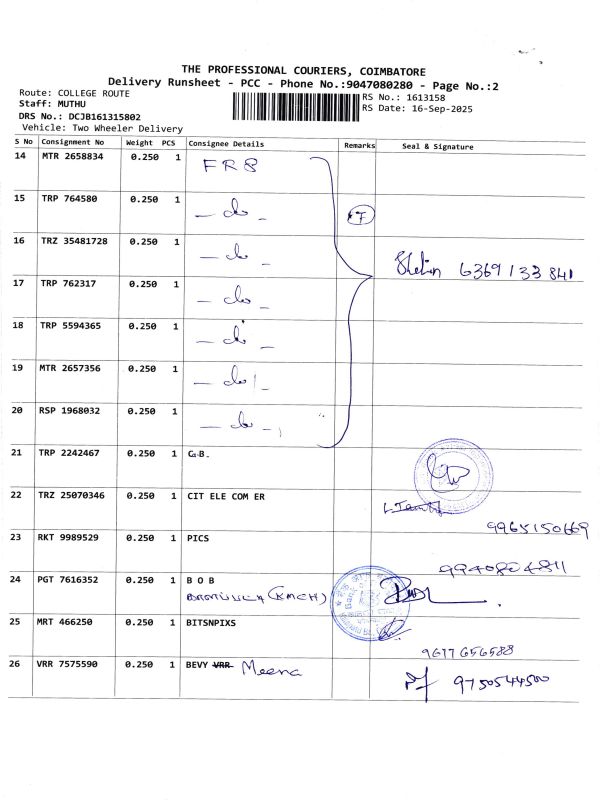 THE PROFESSIONAL COURIERS, COIMBATORE
Delivery Runsheet - PCC - Phone No.:9047080280 - Page No.:2
Route: COLLEGE ROUTE
Staff: MUTHU
DRS No.: DCJB161315802
Vehicle: Two Wheeler Delivery
RS No.: 1613158
RS Date: 16-Sep-2025
S No Consignment No Weight PCS Consignee Details Remarks Seal & Signature
14 MTR 2658834 0.250 1 FR8
15 TRP 764580 0.250 1 - do - 7
16 TRZ 35481728 0.250 1 - do - 6369133841
17 TRP 762317 0.250 1 - do -
18 TRP 5594365 0.250 1 - do -
19 MTR 2657356 0.250 1 - do -
20 RSP 1968032 0.250 1 - do -
21 TRP 2242467 0.250 1 G.B.
22 TRZ 25070346 0.250 1 CIT ELE COM ER
9965150669
23 RKT 9989529 0.250 1 PICS
9940804811
24 PGT 7616352 0.250 1 B O B
(KMCH)
25 MRT 466250 0.250 1 BITSNPIXS
9677656588
26 VRR 7575590 0.250 1 BEVY VRR Meena
9750544500